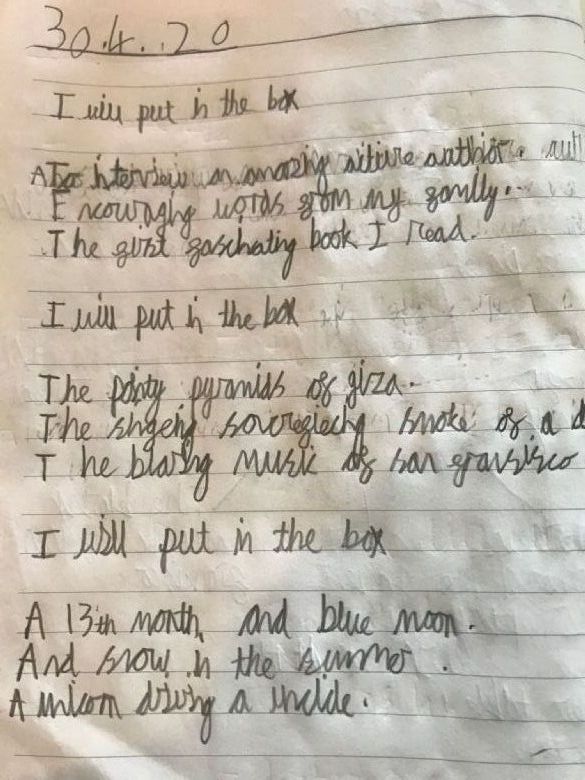 30.4.20
I will put in the box
A interview an amazing author.
Encouraging words from my family.
The first faschating book I read.
I will put in the box
The pointy pyramids of giza.
The smoke of a
The blaring music of san fransisco
I will put in the box
A 13th month and blue moon.
And snow in the summer.
A unicorn driving a